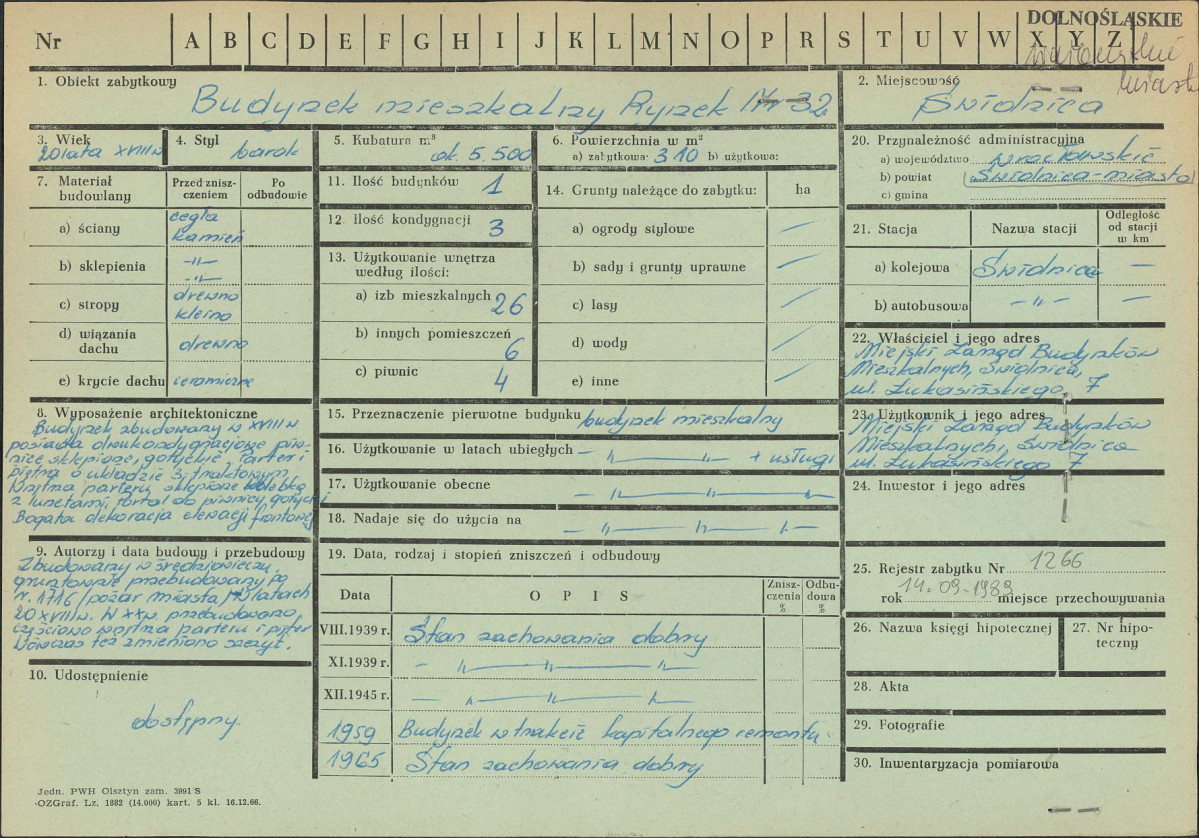 DOLNOŚLĄSKIE
Nr A B C D E F G H I J K L M N O P R S T U V W X Y Z
1. Obiekt zabytkowy
Budynek mieszkalny Rynek Nr 32
2. Miejscowość
Świdnica
3. Wiek
20 lata XVIII w
4. Styl
barok
5. Kubatura m³
ok. 5.500
6. Powierzchnia w m²
a) zabytkowa: 310 b) użytkowa:
20. Przynależność administracyjna
a) województwo wrocławskie
b) powiat Świdnica-miasto
c) gmina
7. Materiał budowlany
Przed zniszczeniem
Po odbudowie
a) ściany cegła kamień
b) sklepienia -"-
-"-
c) stropy drewno
kleino
d) wiązania dachu drewno
e) krycie dachu ceramiczne
11. Ilość budynków 1
12. Ilość kondygnacji 3
13. Użytkowanie wnętrza według ilości:
a) izb mieszkalnych 26
b) innych pomieszczeń 6
c) piwnic 4
14. Grunty należące do zabytku: ha
a) ogrody stylowe —
b) sady i grunty uprawne —
c) lasy —
d) wody —
e) inne —
21. Stacja
Nazwa stacji
Odległość od stacji w km
a) kolejowa Świdnica —
b) autobusowa -"- —
22. Właściciel i jego adres
Miejski Zarząd Budynków
Mieszkalnych, Świdnica,
ul. Łukasińskiego 7
8. Wyposażenie architektoniczne
Budynek zbudowany w XVIII w.
posiada dwukondygnacjowe piwnice
sklepione, gotyckie. Parter i
piętra o układzie 3, traktowym,
Wnętrza parteru sklepione kolebką
z lunetami, portal do piwnicy gotycki
Bogata dekoracja elewacji frontowej
15. Przeznaczenie pierwotne budynku budynek mieszkalny
16. Użytkowanie w latach ubiegłych - " - + usługi
17. Użytkowanie obecne - " - " - "
18. Nadaje się do użycia na - " - " - "
23. Użytkownik i jego adres
Miejski Zarząd Budynków
Mieszkalnych, Świdnica
ul. Łukasińskiego 7
24. Inwestor i jego adres
9. Autorzy i data budowy i przebudowy
Zbudowany w średniowieczu,
gruntownie przebudowany po
r. 1716 /pożar miasta/ w latach
20 XVIII w. W XX w. przebudowano,
częściowo wnętrza parteru i pięter
Wówczas też zmieniono szczyt.
19. Data, rodzaj i stopień zniszczeń i odbudowy
Data
OPIS
Zniszczenia %
Odbudowa %
VIII.1939 r. Stan zachowania dobry
XI.1939 r. - " - " - "
XII.1945 r. - " - " - "
1959 Budynek w trakcie kapitalnego remontu.
1965 Stan zachowania dobry
25. Rejestr zabytku Nr 1266
rok 14.09.1988 miejsce przechowywania
26. Nazwa księgi hipotecznej
27. Nr hipoteczny
28. Akta
29. Fotografie
30. Inwentaryzacja pomiarowa
10. Udostępnienie
dostępny.
Jedn. PWH Olsztyn zam. 3991 S
OZGraf. Lz. 1882 (14.000) kart. 5 kl. 16.12.66.